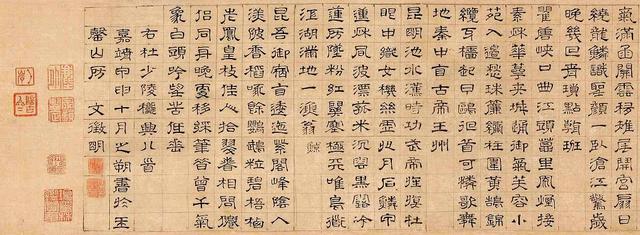 氣滿函關雲移雉尾開宮扇日
繞龍鱗識聖顏一卧滄江驚歲
晚幾回青瑣點朝班
瞿唐峽口曲江頭萬里風煙接
素秋華萼夾城通御氣芙容小
苑入邊愁珠簾繡柱圍黃鵠錦
纜牙檣起白鷗回首可憐歌舞
地秦中自古帝王州
昆明池水漢時功武帝旌旗在
眼中織女機絲虛夜月石鱗甲
動秋風波漂菰米沉雲黑露冷
蓮房墜粉紅關塞極天唯鳥道
江湖滿地一漁翁 鯨
昆吾御宿自逶迤紫閣峰陰入
渼陂香稻啄餘鸚鵡粒碧梧棲
老鳳皇枝佳人拾翠春相問僊
侶同舟晚更移綵筆昔曾干氣
象白頭吟望苦低垂
右杜少陵秋興八首
嘉靖甲申十月之朔書於玉
磬山房 文徵明